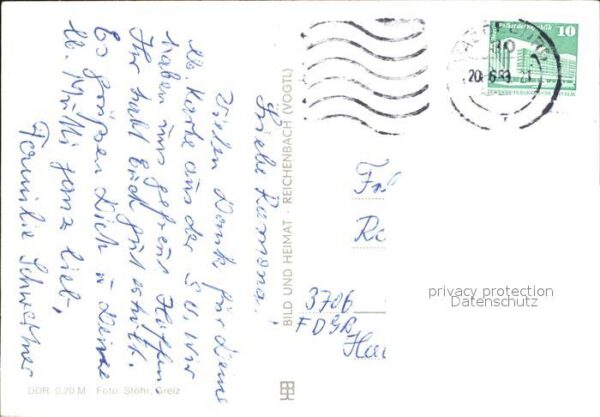 Liebe Ramona!
Vielen Dank für Deine
lb. Karte aus der SU. Wir
haben uns gefreut. Hoffen
Ihr habt Euch gut erholt.
Es grüßen Dich u. Deine
lb. Mutti ganz lieb,
Familie Schwettner
BILD UND HEIMAT · REICHENBACH (VOGTL)
DDR 0,20 M Foto: Stöhr, Greiz
10
20.-6.89.-21
3706
FDGB
privacy protection
Datenschutz